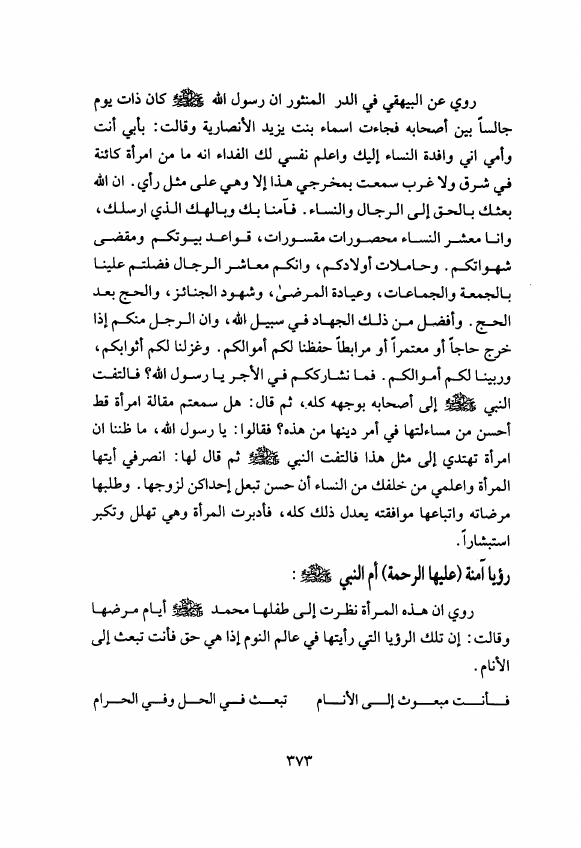 روي عن البيهقي في الدر المنثور ان رسول الله ﷺ كان ذات يوم
جالساً بين أصحابه فجاءت اسماء بنت يزيد الأنصارية وقالت: بأبي أنت
وأمي اني وافدة النساء إليك واعلم نفسي لك الفداء انه ما من امرأة كائنة
في شرق ولا غرب سمعت بمخرجي هذا إلا وهي على مثل رأي. ان الله
بعثك بالحق إلى الرجال والنساء. فآمنا بك وبالهك الذي ارسلك،
وانا معشر النساء محصورات مقسورات، قواعد بيوتكم ومقضى
شهواتكم. وحاملات أولادكم، وانكم معاشر الرجال فضلتم علينا
بالجمعة والجماعات، وعيادة المرضىٰ، وشهود الجنائز، والحج بعد
الحج. وأفضل من ذلك الجهاد في سبيل الله، وان الرجل منكم إذا
خرج حاجاً أو معتمراً أو مرابطاً حفظنا لكم أموالكم. وغزلنا لكم أثوابكم،
وربينا لكم أموالكم. فما نشارككم في الأجر يا رسول الله؟ فالتفت
النبي ﷺ إلى أصحابه بوجهه كله، ثم قال: هل سمعتم مقالة امرأة قط
أحسن من مساءلتها في أمر دينها من هذه؟ فقالوا: يا رسول الله، ما ظننا ان
امرأة تهتدي إلى مثل هذا فالتفت النبي ﷺ ثم قال لها: انصرفي أيتها
المرأة واعلمي من خلفك من النساء أن حسن تبعل إحداكن لزوجها. وطلبها
مرضاته واتباعها موافقته يعدل ذلك كله، فأدبرت المرأة وهي تهلل وتكبر
استبشاراً.
رؤيا آمنة (عليها الرحمة) أم النبي ﷺ :
روي ان هذه المرأة نظرت إلى طفلها محمد ﷺ أيام مرضها
وقالت: إن تلك الرؤيا التي رأيتها في عالم النوم إذا هي حق فأنت تبعث إلى
الأنام.
فأنت مبعوث إلى الأنام تبعث في الحل وفي الحرام
٣٧٣